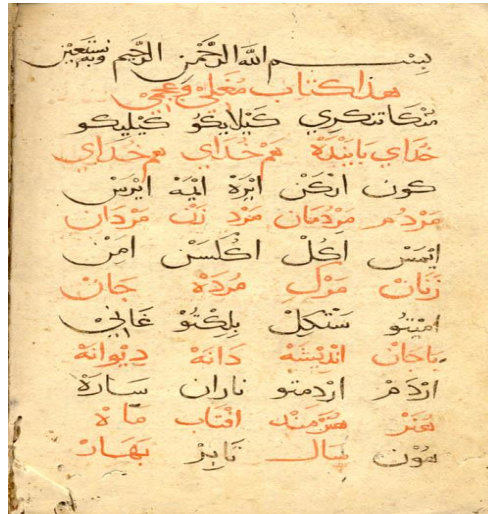 بِسْم اللّه الرَّحْمٰن الرَّحِيم وبه نستعين
هذا كتاب مُغَلِيْ وَعَجَمِيْ
تنكري
خُدَاي هَمْ خُدَاي هم خُدَاي
كون اركَنْ ايرَهْ ايمَهْ ايرَسْ
مَرْدُم مَرْدُمَان مَرْد زَنْ مَرْدَان
ايْمَسْ اكُلْ اكُلْسَنْ امِنْ
زَنَانْ مَرْكِ مُرْدَهْ جَانْ
امِنْتُو سَتْكِلْ بِلِكْتُوْ غَانِيْ
باجَانْ انْدِيْشَهْ دَانَهْ دِيْوَانَهْ
ارْدَمْ ارْدَمْتو نارَان سَارَهْ
هُنَرْ هُنَرْمَنْد افتاب مَاهْ
هُوْن سال نَابِرْ بَهَارْ